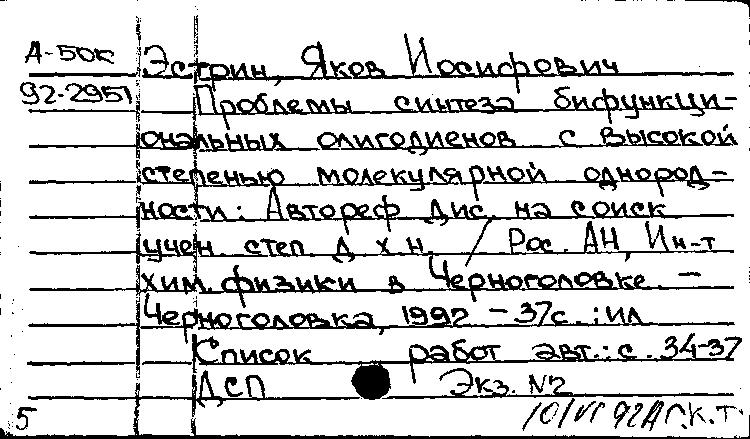 А-50к Эстрин, Яков Иосифович
92-2951 Проблемы синтеза бифункци-
ональных олигодиенов с высокой
степенью молекулярной однород-
ности: Автореф дис. на соиск
учен. степ. д. х. н. / Рос. АН, Ин-т
хим. физики в Черноголовке. –
Черноголовка, 1992 – 37с.: ил
Список работ авт.: с. 34-37
ДСП Экз. №2
5 10/VI 92